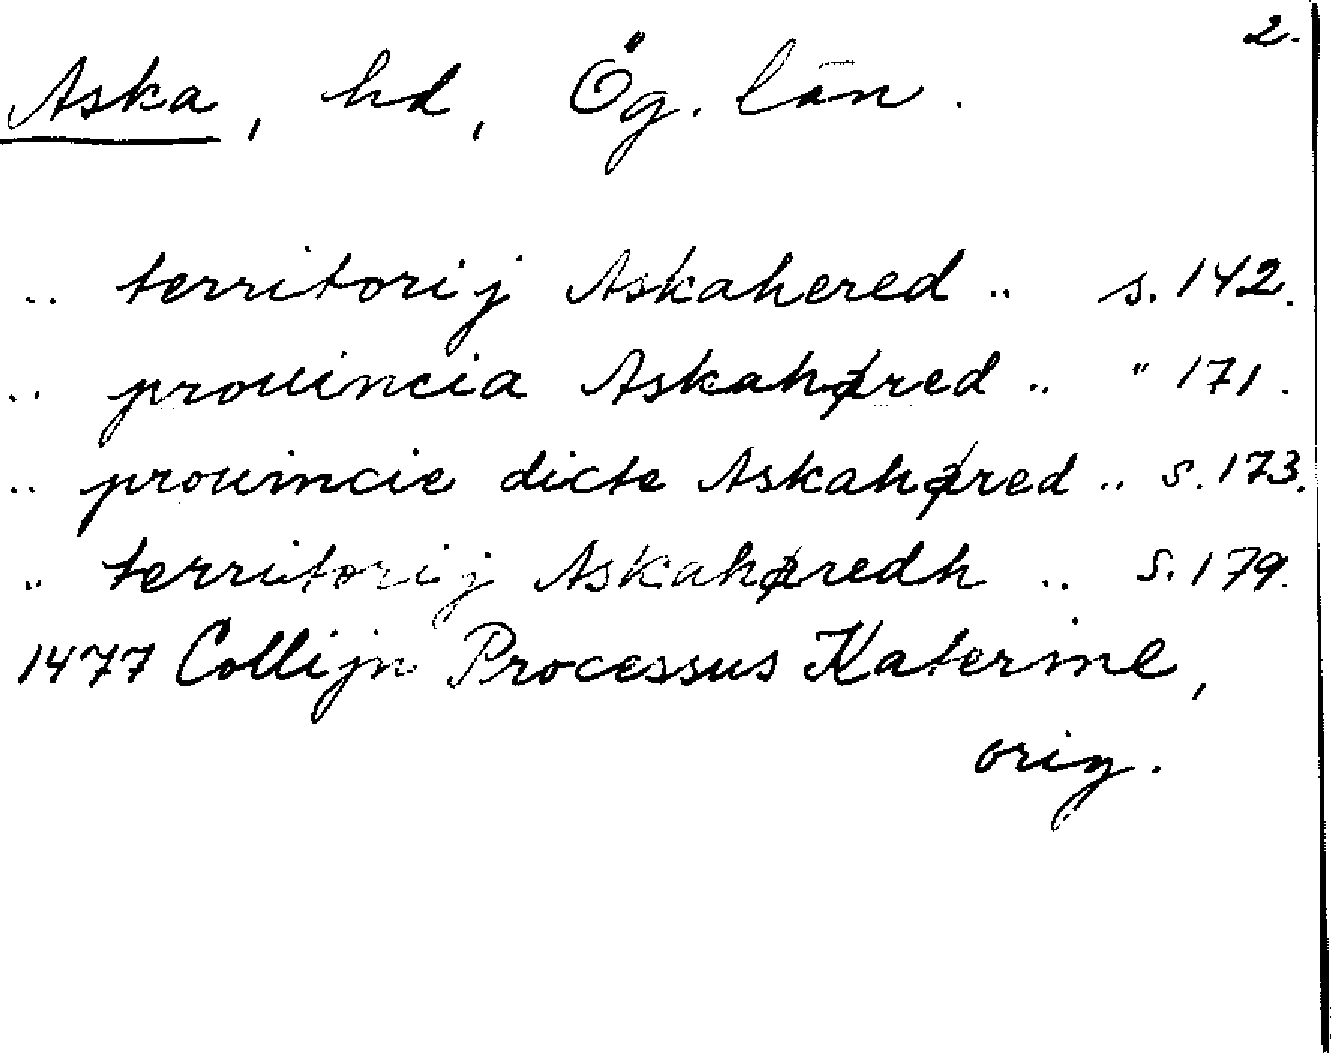 2.
Aska, hd, Ög. län.
.. territorij Askahered .. s. 142.
.. prouincia Askahøred .. " 171.
.. prouincie dicte Askahøred .. s. 173.
.. territorij Askahøredh .. s. 179.
1477 Collijn Processus Katerine,
orig.